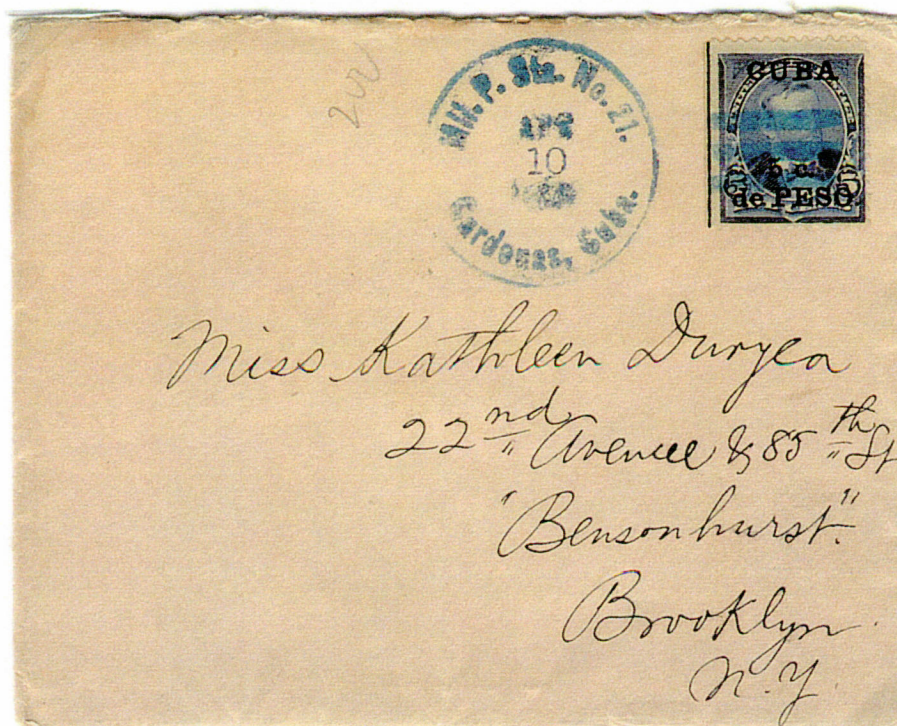 200
Mil. P. Sta. No. 21.
APR
10
Cardenas, Cuba.
CUBA
5 c.
de PESO
5
Miss Kathleen Duryea
22nd Avenue & 85th St
"Bensonhurst".
Brooklyn
N.Y.